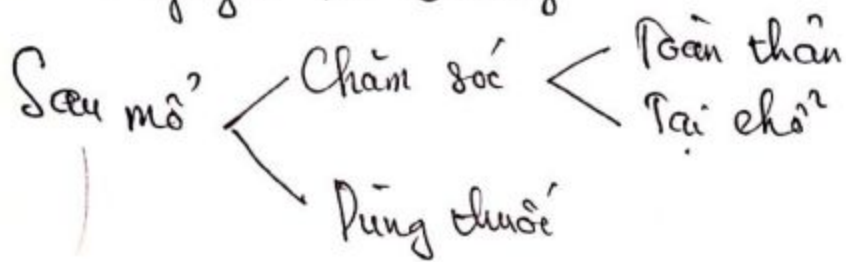 Sau mổ
Chăm sóc
Toàn thân
Tại chỗ
Dùng thuốc